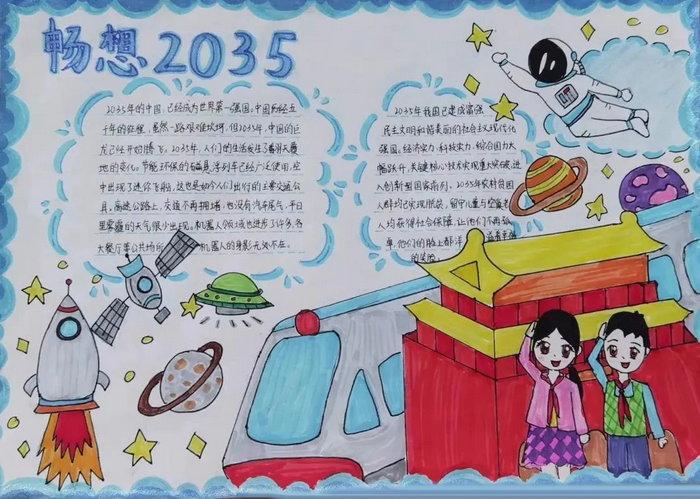 畅想2035
2035年的中国,已经成为世界第一强国,中国历经五
千年的征程,虽然一路艰难坎坷,但2035年,中国的巨
龙已经开始腾飞。2035年,人们的生活发生了翻天覆
地的变化。节能环保的磁悬浮列车已经广泛使用,空
中出现了迷你飞船,这也是如今人们出行的主要交通公
具,高速公路上,交通不再拥堵,也没有汽车尾气,平日
里雾霾的天气很少出现。机器人领域也进步了许多,各
大餐厅等公共场所 机器人的身影无处不在。
2035年我国已建成富强
民主文明和谐美丽的社会主义现代化
强国。经济实力、科技实力、综合国力大
幅跃升,关键核心技术实现重大突破,进
入创新型国家前列。2035年农村贫困
人群均已实现脱贫,留守儿童与空巢老
人均获得社会保障,让他们不再孤
单,他们的脸上都洋溢着幸福
的笑容。